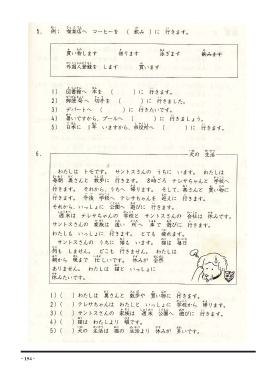 5. 例: 喫茶店へ コーヒーを ( 飲み ) に 行きます。
買い物します 借ります 泳ぎます 飲みます
外国人登録を します 買います
1) 図書館へ 本を ( ) に 行きます。
2) 郵便局へ 切手を ( ) に 行きました。
3) デパートへ ( ) に 行きたいです。
4) 暑いですから、プールへ ( ) に 行きましょう。
5) 日本に 1年 いますから、市役所へ ( ) に 行きます。
6.
犬の 生活
わたしは トモです。 サントスさんの うちに います。 わたしは
毎朝 奥さんと 散歩に 行きます。 8時ごろ テレサちゃんと 学校へ
行きます。 それから、うちへ 帰ります。 そして、奥さんと 買い物に
行きます。 午後 学校へ テレサちゃんを 迎えに 行きます。
それから、いっしょに 公園へ 遊びに 行きます。
週末は テレサちゃんの 学校と サントスさんの 会社は 休みです。
サントスさんの 家族は 遠い 所へ 車で 遊びに 行きます。
わたしも いっしょに 行きます。 とても 疲れます。
サントスさんの うちに 猫も います。 猫は 毎日
何も しません。 どこも 行きません。 わたしは
朝から 晩まで 忙しいです。 休みが 全然
ありません。 わたしは 猫と いっしょに
休みたいです。
1) ( ) わたしは 奥さんと 散歩や 買い物に 行きます。
2) ( ) テレサちゃんは わたしと いっしょに 学校から 帰ります。
3) ( ) サントスさんの 家族は 週末 公園へ 遊びに 行きます。
4) ( ) 猫は わたしより 暇です。
5) ( ) 犬の 生活は 猫の 生活より 休みが 多いです。
- 194 -